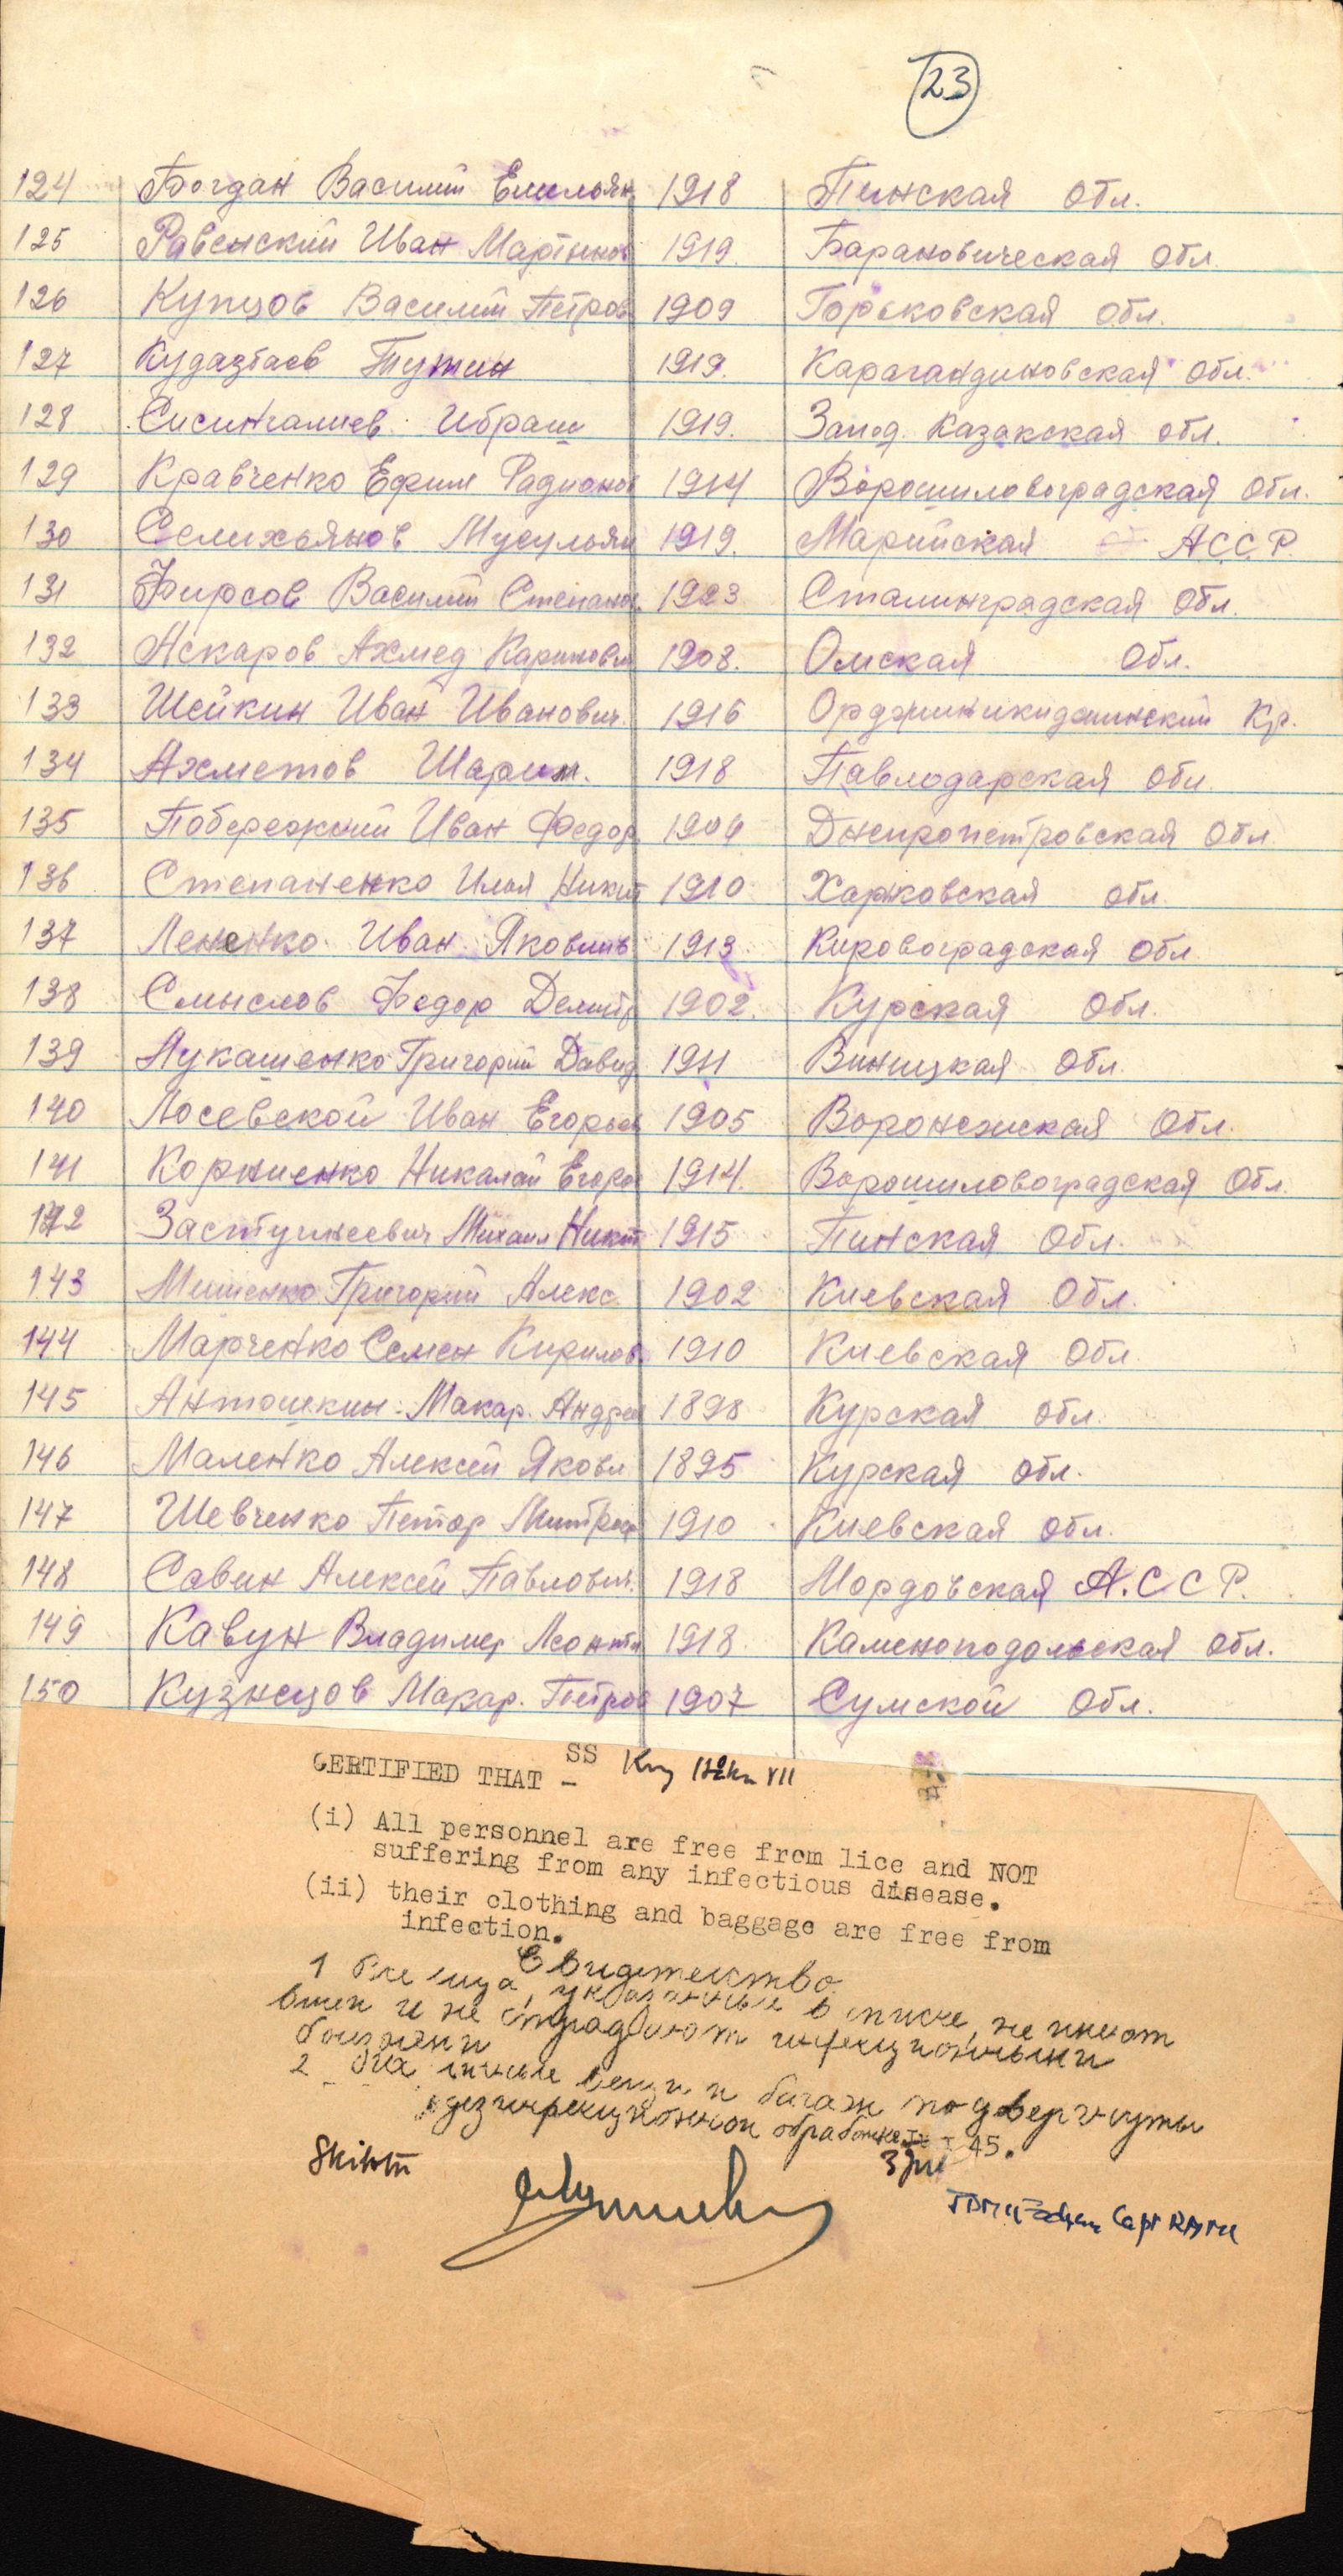 23
124 Богдан Василий Емельян 1918 Пинская обл.
125 Равенский Иван Мартинов 1919. Барановическая обл.
126 Купцов Василий Петров 1909 Горьковская обл.
127 Кудазбаев Тумин 1919. Карагандиновская обл.
128 Сисингалиев Ибраш 1919. Запад. Казакская обл.
129 Кравченко Ефим Радионов 1914 Ворошиловоградская обл.
130 Селихьянов Мусульян 1919. Марийская АССР.
131 Фирсов Василий Степанов. 1923 Сталинградская обл.
132 Аскаров Ахмед Каримович 1908. Омская обл.
133 Шейкин Иван Иванович. 1916 Орджиникидзинский Кр.
134 Ахметов Шарип. 1918 Павлодарская обл.
135 Побережний Иван Федор 1906 Днепропетровская обл
136 Степаненко Илья Никит 1910 Харковская обл.
137 Лененко Иван Яковлев 1913 Кировоградская обл
138 Смыслов Федор Дмитр 1902. Курская обл.
139 Лукашенко Григорий Давид 1911 Виницкая обл.
140 Лосевской Иван Егорьев 1905 Воронежская обл.
141 Корниенко Николай Егоров 1914. Ворошиловоградская обл.
142 Застугнеевич Михаил Никит 1915 Пинская обл.
143 Мишенко Григорий Алекс. 1902 Киевская обл.
144 Марченко Семен Кирилов. 1910 Киевская обл
145 Антошкин Макар. Андрее 1898 Курская обл.
146 Маленко Алексей Яковл 1895 Курская обл.
147 Шевченко Петор Митроф 1910 Киевская обл.
148 Савин Алексей Павлович. 1918 Мордовская А.ССР.
149 Кавун Владимер Леонти 1918. Каменоподольская обл.
150 Кузнецов Макар. Петров 1907 Сумской обл.
CERTIFIED THAT - SS
(i) All personnel are free from lice and NOT
suffering from any infectious disease.
(ii) their clothing and baggage are free from
infection.
Свидетельство
1 все лица, указанные в списке, не имеют
вшей и не страдают инфекционными
болезнями
2 Их личные вещи и багаж подвергнуты
дезинфекционной обработке I 45.
Capt RAMC